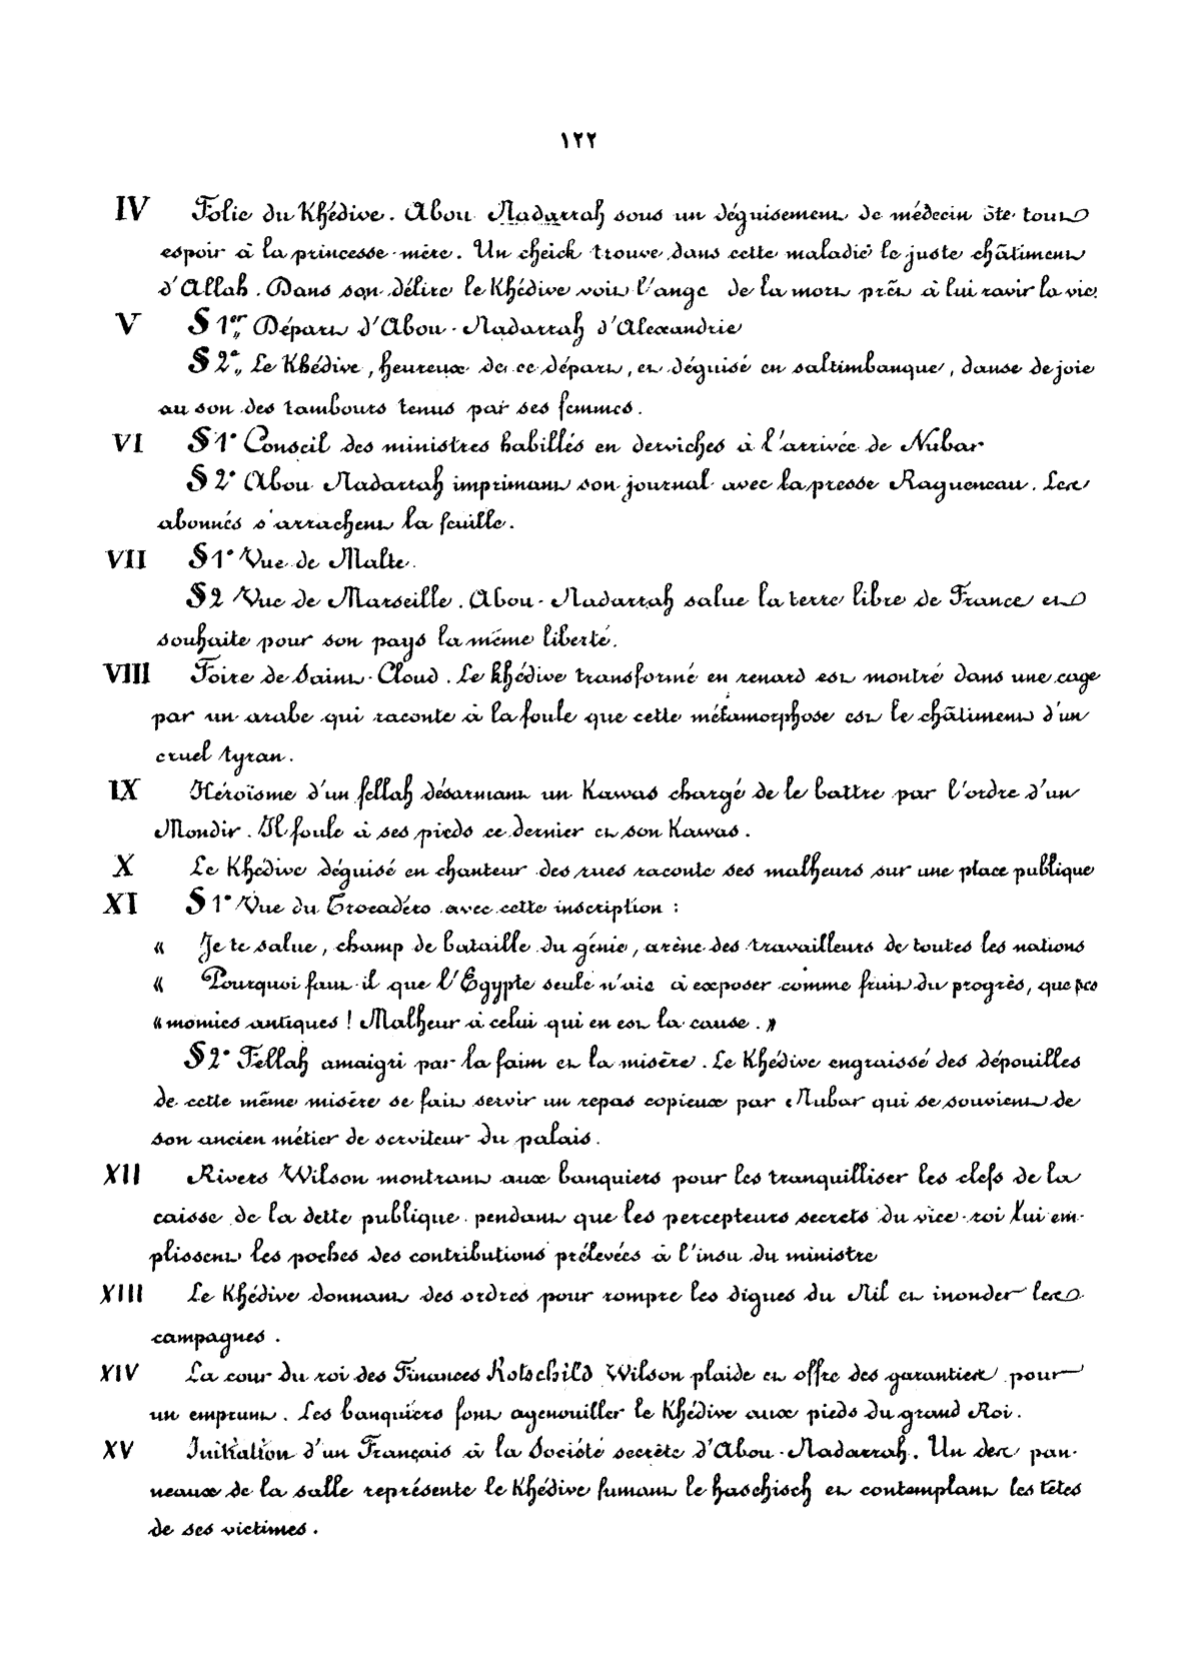 ١٢٢
IV Folie du Khédive. Abou Nadarrah sous un déguisement de médecin ôte tout
espoir à la princesse-mère. Un cheick trouve dans cette maladie le juste châtiment
d'Allah. Dans son délire le Khédive voit l'ange de la mort prêt à lui ravir la vie.
V § 1er Départ d'Abou-Nadarrah d'Alexandrie
§ 2e Le Khédive, heureux de ce départ, et déguisé en saltimbanque, danse de joie
au son des tambours tenus par ses femmes.
VI § 1° Conseil des ministres habillés en derviches à l'arrivée de Nubar
§ 2° Abou Nadarrah imprimant son journal avec la presse Ragueneau. Les
abonnés s'arrachent la feuille.
VII § 1° Vue de Malte.
§ 2 Vue de Marseille. Abou-Nadarrah salue la terre libre de France et
souhaite pour son pays la même liberté.
VIII Foire de Saint-Cloud. Le Khédive transformé en renard est montré dans une cage
par un arabe qui raconte à la foule que cette métamorphose est le châtiment d'un
cruel tyran.
IX Héroïsme d'un fellah désarmant un Kawas chargé de le battre par l'ordre d'un
Moudir. Il foule à ses pieds ce dernier et son Kawas.
X Le Khédive déguisé en chanteur des rues raconte ses malheurs sur une place publique
XI § 1° Vue du Trocadéro avec cette inscription :
« Je te salue, champ de bataille du génie, arène des travailleurs de toutes les nations
« Pourquoi faut-il que l'Egypte seule n'aie à exposer comme fruit du progrès, que ses
« momies antiques ! Malheur à celui qui en est la cause. »
§ 2° Fellah amaigri par la faim et la misère. Le Khédive engraissé des dépouilles
de cette même misère se fait servir un repas copieux par Nubar qui se souvient de
son ancien métier de serviteur du palais.
XII Rivers Wilson montrant aux banquiers pour les tranquilliser les clefs de la
caisse de la dette publique pendant que les percepteurs secrets du vice-roi lui em-
plissent les poches des contributions prélevées à l'insu du ministre
XIII Le Khédive donnant des ordres pour rompre les digues du Nil et inonder les
campagnes.
XIV La cour du roi des Finances Rotschild Wilson plaide et offre des garanties pour
un emprunt. Les banquiers font agenouiller le Khédive aux pieds du grand Roi.
XV Initiation d'un Français à la Société secrète d'Abou-Nadarrah. Un des pan-
neaux de la salle représente le Khédive fumant le haschisch et contemplant les têtes
de ses victimes.